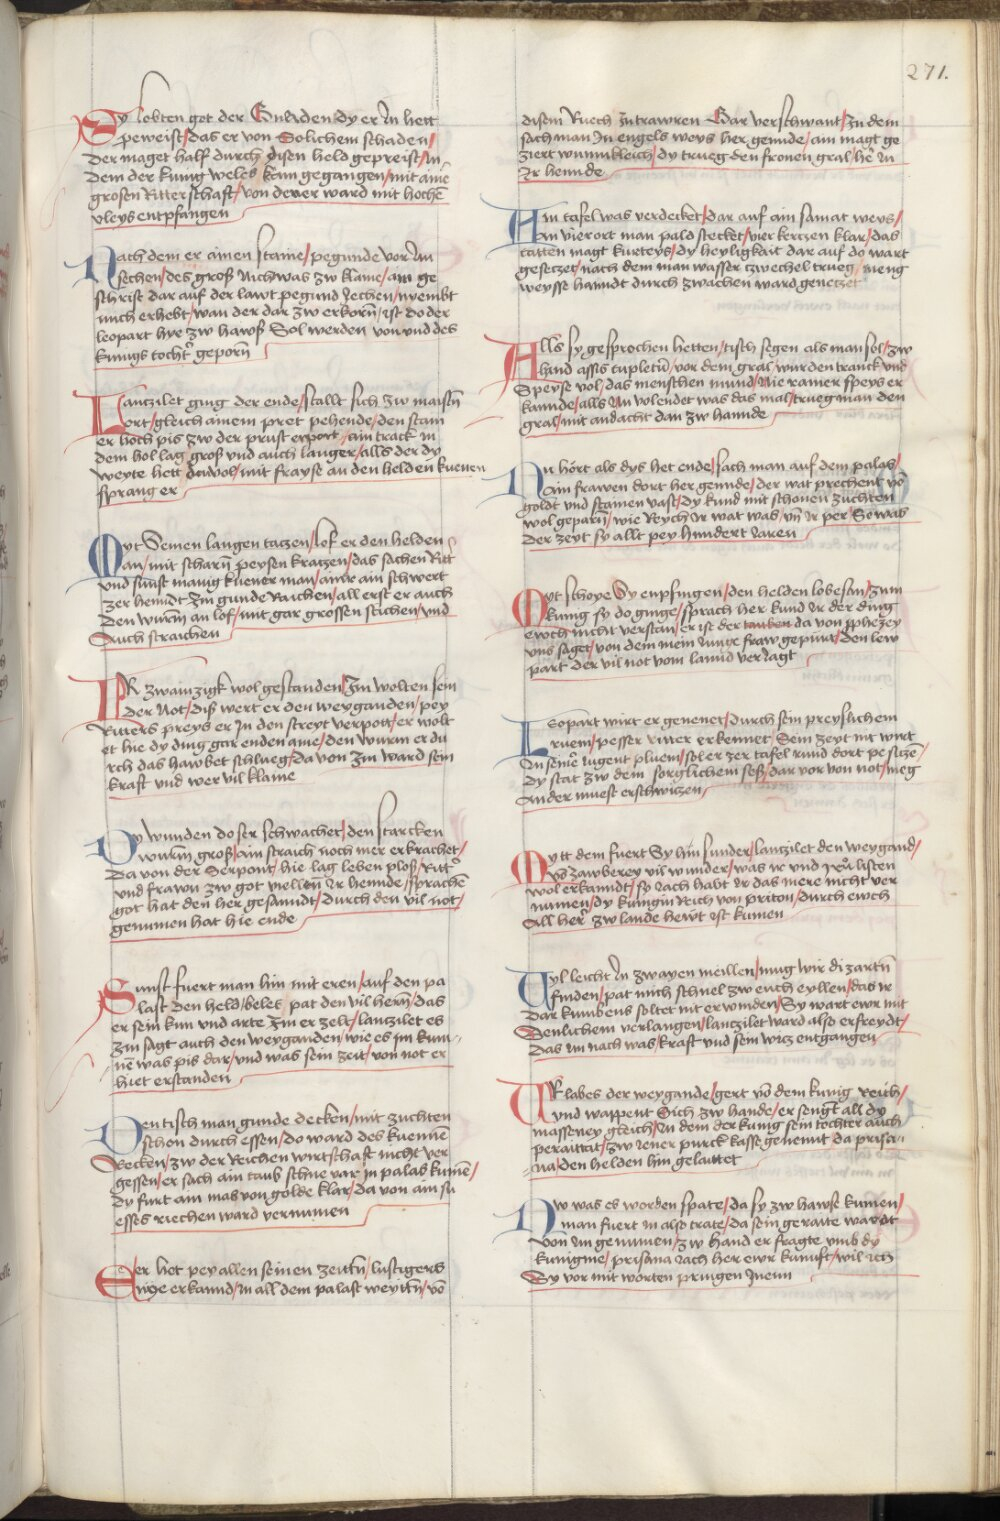 271.
Dy lobten got der Gnaden dy er In hett
peweist / das er von Solichem schaden /
Der maget half durch disen held gepreist / In
dem der kunig weles kam gegangen / mit aine
grosen Ritterschaft / von dener ward mit hochē
vleys entpfangen
Nach dem er ainen staine / pegunde vor In
sechen / des groß nich was zw klaine / ain ge
schrift dar auf der lawt pegund Jechen / nyembt
mich erhebt / wan der dar zw erkorn̄ / ist do der
leopart hye zw hawß Sol werden von vnd des
kunigs tocht' geporn̄
Lantzilet ging der ende / stallt sich zw maistn̄
ort / gleich ainem pret pehende / den stain
er hoch pis zw der prust erport / ain track in
dem hol lag groß vnd auch langer / alls der dy
weyte hett dawol / mit frayse an den helden kuenen
sprang er
Myt Seinen langen tatzen / lof er den helden
an / mit scharn̄ peysen kratzen / das sachen Ritt
vnd sunst manig kuener man / amar ain schwert
zer hendt Im gunde Raichen / all erst er auch
Den wurm̄ an lof / mit gar grossen stichen / vnd
Auch straichen
IR zwainzigk wol gestanden / Im wolten sein
der Not / diß wert er den weyganden / pey
Ritters preys er In den streyt verpott / er wolt
et hie dy ding gar enden aine / den wurm er du
rch das hawbet schlueg / da von Im ward sein
kraft vnd wer vil klaine
Dy wunden do ser schwachet / den starcken
wurm̄ groß / ain straich noch mer erkrachet /
Da von der Serpont / hie lag leben ploß / Ritt'
vnd frawn zw got viellen Ir hennde / sprachē
got hat den her gesanndt / durch den vil not /
genumen hat hie ende
Sunst fuert man hin mit eren / auf den pa
last den held / beles pat den vil hern̄ / das
er sein kun vnd arte Im er zelt / lantzilet es
Im sagt auch den weyganden / wie es im kum
nē was pis dar / vnd was sein zeit / von not er
hiet erstanden
Den tisch man gunde decken / mit zuchten
schon durch essen / do ward des kuennē
Recken / zw der Reichen wirtschaft nicht ver
gessen / er sach ain taub schne var jn palas kumē /
dy furt ain mas von golde klar / da von ain su
esses riechen ward vernumen
Der het pey allen seinen zeittn̄ / lustigers
Nye erkannd / in all dem palast weyttn̄ / vō
disem Ruech Ir trawren Gar verschwant / In dem
sach man In engels weys her gennde / ain magt ge
ziert wunnkleich / dy trueg den fronen gral / her In
Ir hennde
Ain tafel was verdecket / dar auf ain samat weys /
An vier ort man pald stecket / vier kertzen klar / das
tatten magt kurteys / dy heyligkait dar auf do wart
gesetzet / nach dem man wasser zwechel trueg / meng
weysse hanndt durch zwachen ward genetzet
Alls sy gesprochen hetten / tisch segen als man sol / zw
hand assis cupletū / vor dem gral / wurden tranck vnd
Speyse vol / das menschen mund / Nie rainer speys er
kannde / alls nu volendet was das mal / trueg man den
gral / mit andacht dan zw hannde
Nu hört als dys het ende / sach man auf dem palas /
Ain frawen dort her gennde / der wat prechent vō
goldt vnd stainen vast / dy kund mit schonen zuchten
wol geparn̄ / wie Reych Ir wat was / vn̄ Ir per So was
der zeyt sy allt pey hundert Jaren
Myt schoye Sy enpfingen / den helden lobesan / zum
kunig sy do ginge / sprach her kund Ir der ding
ewch nicht verstan / er ist der tauben da von pphezey
vns saget / von dem mein Junge fraw gepirt / den lew
part der vil not vom lannd verJagt
Leopart wirt er genenet / durch sein preyslichem
ruem / pesser ritter erkennet Sein zeyt nit wirt
In seine Jugent pluem / sol er zer tafel rund dort pesitzē
dy stat zw dem sorglichem seß / dar vor von not / meg
Ander muest erschwitzen /
Mytt dem fuert Sy hin sunder / lantzilet den weygand /
Vō zawberey vil wunder / was Ir vnd Jr listen
wol erkanndt / so Jach habt Ir das mere nicht ver
numen / dy kunigin Reich von priton / durch ewch
All her' zw lande hewt ist kumen
Vyl leicht In zwayen meillen / mug wir di zartn̄
finden / pat mich schnel zw euch eyllen / das Ir
dar kumbens soltet nit er winden / Sy wart ewr mit
Senlichem verlangen / lantzilet ward also erfreydt /
Das im nach was kraft vnd sein witz entgangen
Vrlabes der weygande / gert vō dem kunig Reich /
vnd wappent Sich zw hande / er sengt all dy
massney gleich / In dem der kunig sein tochter auch
peraittat / zw Jener purck kasse genennt da prisa
na / den helden hin gelaittet
Nw was es worden spate / da sy zw hawse kumen /
man fuert in also trate / da sein geraite wardt
von im genumen / zw hand er fragte vmb dy
kunigine / prisana Jach her ewr kunft / wil ich
Sy vor mit worten pringen Jnenn